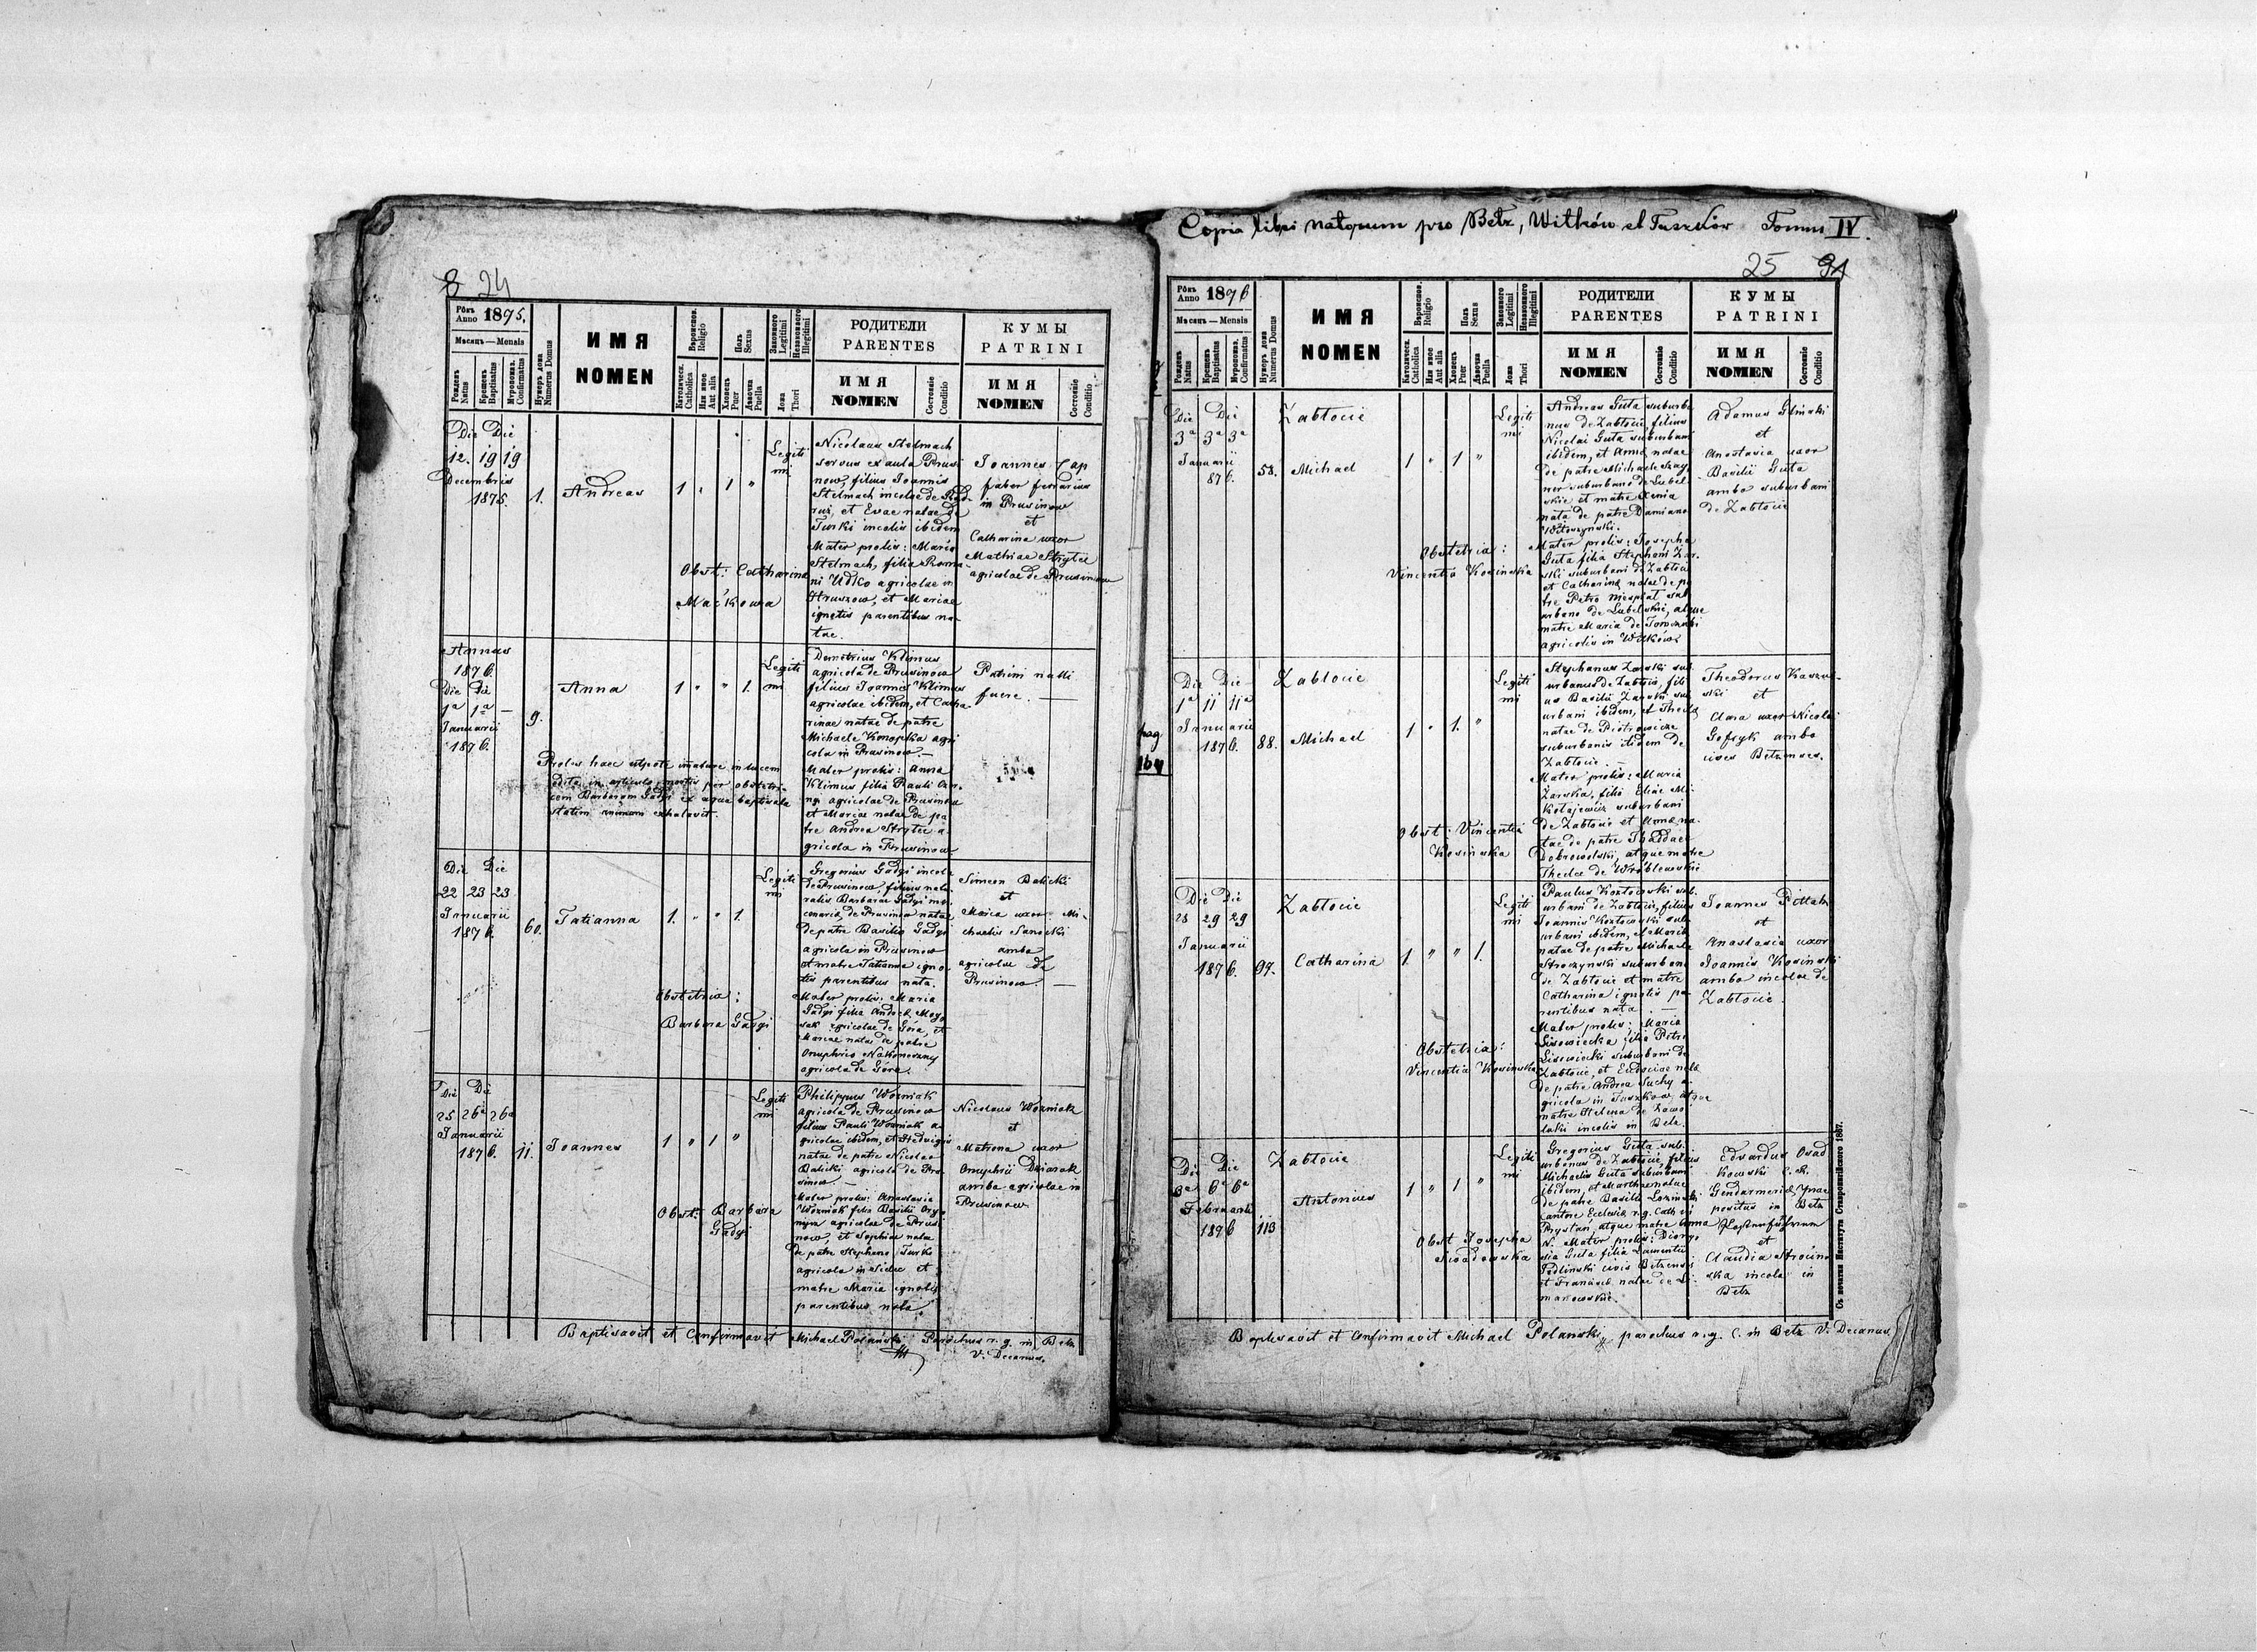 8 24
Рôкъ Anno 1875.
Мѣсяцъ — Mensis
Рожденъ Natus
Крещенъ Baptisatus
Мѵропомаз. Confirmatus
Нумеръ дома Numerus Domus
ИМЯ
NOMEN
Вѣроиспов. Religio
Католическ. Catholica
Или иное Aut alia
Полъ Sexus
Хлопецъ Puer
Дѣвочка Puella
Законного Legitimi
Незаконного Illegitimi
Ложа Thori
РОДИТЕЛИ
PARENTES
ИМЯ
NOMEN
Состояніе Conditio
КУМЫ
PATRINI
ИМЯ
NOMEN
Состояніе Conditio
Die Die
12. 19 19
Decembris
1875. 1.
Andreas
1 " 1 "
Legiti
mi
Nicolaus Stelmach
servus ex aula Prusi
now, filius Joannis
Stelmach incolae de
et Evae natae de
Turki incolis ibidem
Mater prolis: Maria
Stelmach, filia Roma-
ni Udko agricolae in
Hruszow, et Mariae
ignotis parentibus na-
tae.
Joannes Cap
faber ferrarius
in Prusinow
et
Catharina uxor
Mathiae Strytec
agricolae de Prusinow
Obst: Catharina
Maćkowa
Annus
1876.
Die Die
1ª 1ª —
Januarii
1876.
9.
Anna
1 " " 1.
Legiti
mi
Demetrius Klimus
agricola de Prusinow
filius Joannis Klimus
agricolae ibidem, et Catha
rinae natae de patre
Michaele Konopka agri
cola in Prusinow —
Mater prolis: Anna
Klimus filia Pauli
agricolae de Prusinow
et Mariae natae de pa
tre Andrea Strytec a-
gricola in Prusinow
Patrini nulli
fuere. —
Proles haec utpote immature in lucem
edita in articulo mortis per obstetri-
cem Barbaram Gadzi ex aqua baptisata
statim animam exhalavit.
Die Die
22 23 23
Januarii
1876.
60.
Tatianna
1. " " 1.
Legiti
mi
Gregorius Gadzi incola
de Prusinow, filius natu-
ralis Barbarae Gadzi
de Prusinow natae
de patre Basilio Gadzi
agricola in Prusinow
et matre Tatianna igno
tis parentibus nata.
Mater prolis: Maria
Gadzi filia
agricolae de Góra, et
Mariae natae de patre
Onuphrio Nakoneczny
agricola de Góra.
Simeon Balicki
et
Maria uxor Mi-
chaelis Sanocki
ambo
agricolae de
Prusinow. —
Obstetrix:
Barbara Gadzi
Die Die
25 26ª 26ª
Januarii
1876. 11.
Joannes
1 " 1 "
Legiti
mi
Philippus Wozniak
agricola de Prusinow
filius Pauli Wozniak a-
gricolae ibidem, et Hedvigis
natae de patre Nicolao
Balicki agricola de Pru
sinow. —
Mater prolis: Anastasia
Wozniak filia Basilii
agricolae de Prusi
now, et Sophiae natae
de patre Stephano Turko
agricola in Sielec et
matre Maria ignotis
parentibus nata
Nicolaus Wozniak
et
Matrona uxor
Onuphrii
ambo agricolae in
Prusinow
Obst: Barbara
Gadzi
Baptisavit et Confirmavit Michael Polański Parochus r. g. in Bełz
V. Decanus.
Copia libri natorum pro Bełz, Witków et Tuszków Tomus IV.
25 91
Рôкъ Anno 1876
Мѣсяцъ — Mensis
Рожденъ Natus
Крещенъ Baptisatus
Мѵропомаз. Confirmatus
Нумеръ дома Numerus Domus
ИМЯ
NOMEN
Вѣроиспов. Religio
Католическ. Catholica
Или иное Aut alia
Полъ Sexus
Хлопецъ Puer
Дѣвочка Puella
Законного Legitimi
Незаконного Illegitimi
Ложа Thori
РОДИТЕЛИ
PARENTES
ИМЯ
NOMEN
Состояніе Conditio
КУМЫ
PATRINI
ИМЯ
NOMEN
Состояніе Conditio
Die Die
3ª 3ª 3ª
Januarii
876.
58.
Zabłocie
Michael
1 " 1 "
Legiti
mi
Andreas Guta suburba
nus de Zabłocie, filius
Nicolai Guta suburbani
ibidem, et Anna natae
de patre Michaele
suburbano de Lubel
skie et matre Xenia
nata de patre Damiano
Mater prolis: Josepha
Guta filia Stephani Zar-
ski suburbani de Zabłocie
et Catharina natae de pa
tre Petro sub
urbano de Lubelskie, atque
matre Maria de
agricolis in Witków
Adamus Gliński
et
Anastasia uxor
Basilii Guta
ambo suburbani
de Zabłocie
Obstetrix:
Vincentia Kosinska
pag
164
Die Die
1ª 11 11ª
Januarii
1876. 88.
Zabłocie
Michael
1 " 1. "
Legiti
mi
Stephanus Zarski sub
urbanus de Zabłocie, fili
us Basilii Zarski sub
urbani ibidem, et Thecla
natae de Piotrowicze
suburbanis itidem de
Zabłocie. —
Mater prolis: Maria
Zarska, filia Eliae Mi-
kołajewicz suburbani
de Zabłocie et Anna na-
tae de patre Thaddaeo
Dobrowolski, atque matre
Thecla de Wróblewskie
Theodorus
et
Clara uxor Nicolai
Gofryk ambo
cives Betzenses.
Obst: Vincentia
Kosinska
Die Die
28 29 29
Januarii
1876. 97.
Zabłocie
Catharina
1. " " 1.
Legiti
mi
Paulus Kozłowski sub-
urbani de Zabłocie, filius
Joannis Kozłowski sub-
urbani ibidem, et Maria
natae de patre Michaele
Stroczynski suburbano
de Zabłocie et matre
Catharina ignotis pa-
rentibus nata. —
Mater prolis: Maria
Lisowiecka, filia Petri
Lisowiecki suburbani de
Zabłocie, et Eudociae natae
de patre Andrea Suchy a-
gricola in Tuszkow, atque
matre Helena de Zawo
incolis in Betz.
Joannes
et
Anastasia uxor
Joannis Kosinski
ambo incolae de
Zabłocie.
Obstetrix:
Vincentia Kosinska
Die Die
6ª 6ª 6ª
Februarii
1876 113
Zabłocie
Antonius
1 " 1 "
Legiti
mi
Gregorius Guta sub-
urbanus de Zabłocie, filius
Michaelis Guta suburbani
ibidem, et Martha natae
de patre Basilio Łoziński
cantore Ecclesiae r. g. Cath. in
Przystań, atque matre Anna
N. Mater prolis: Dionys
sia Guta filia Laurentii
Podlinski civis Betzensis
et Francisc. natae de Li-
manowskie.
Edvardus Osad
kowski c. R.
Gendarmeriae Prae
positus in Betz
et
Claudia
incola in
Betz
Obst Josepha
Baptisavit et Confirmavit Michael Polanski parochus r. g. C. in Betz V. Decanus
Съ печатни Института Ставропигійского 1867.